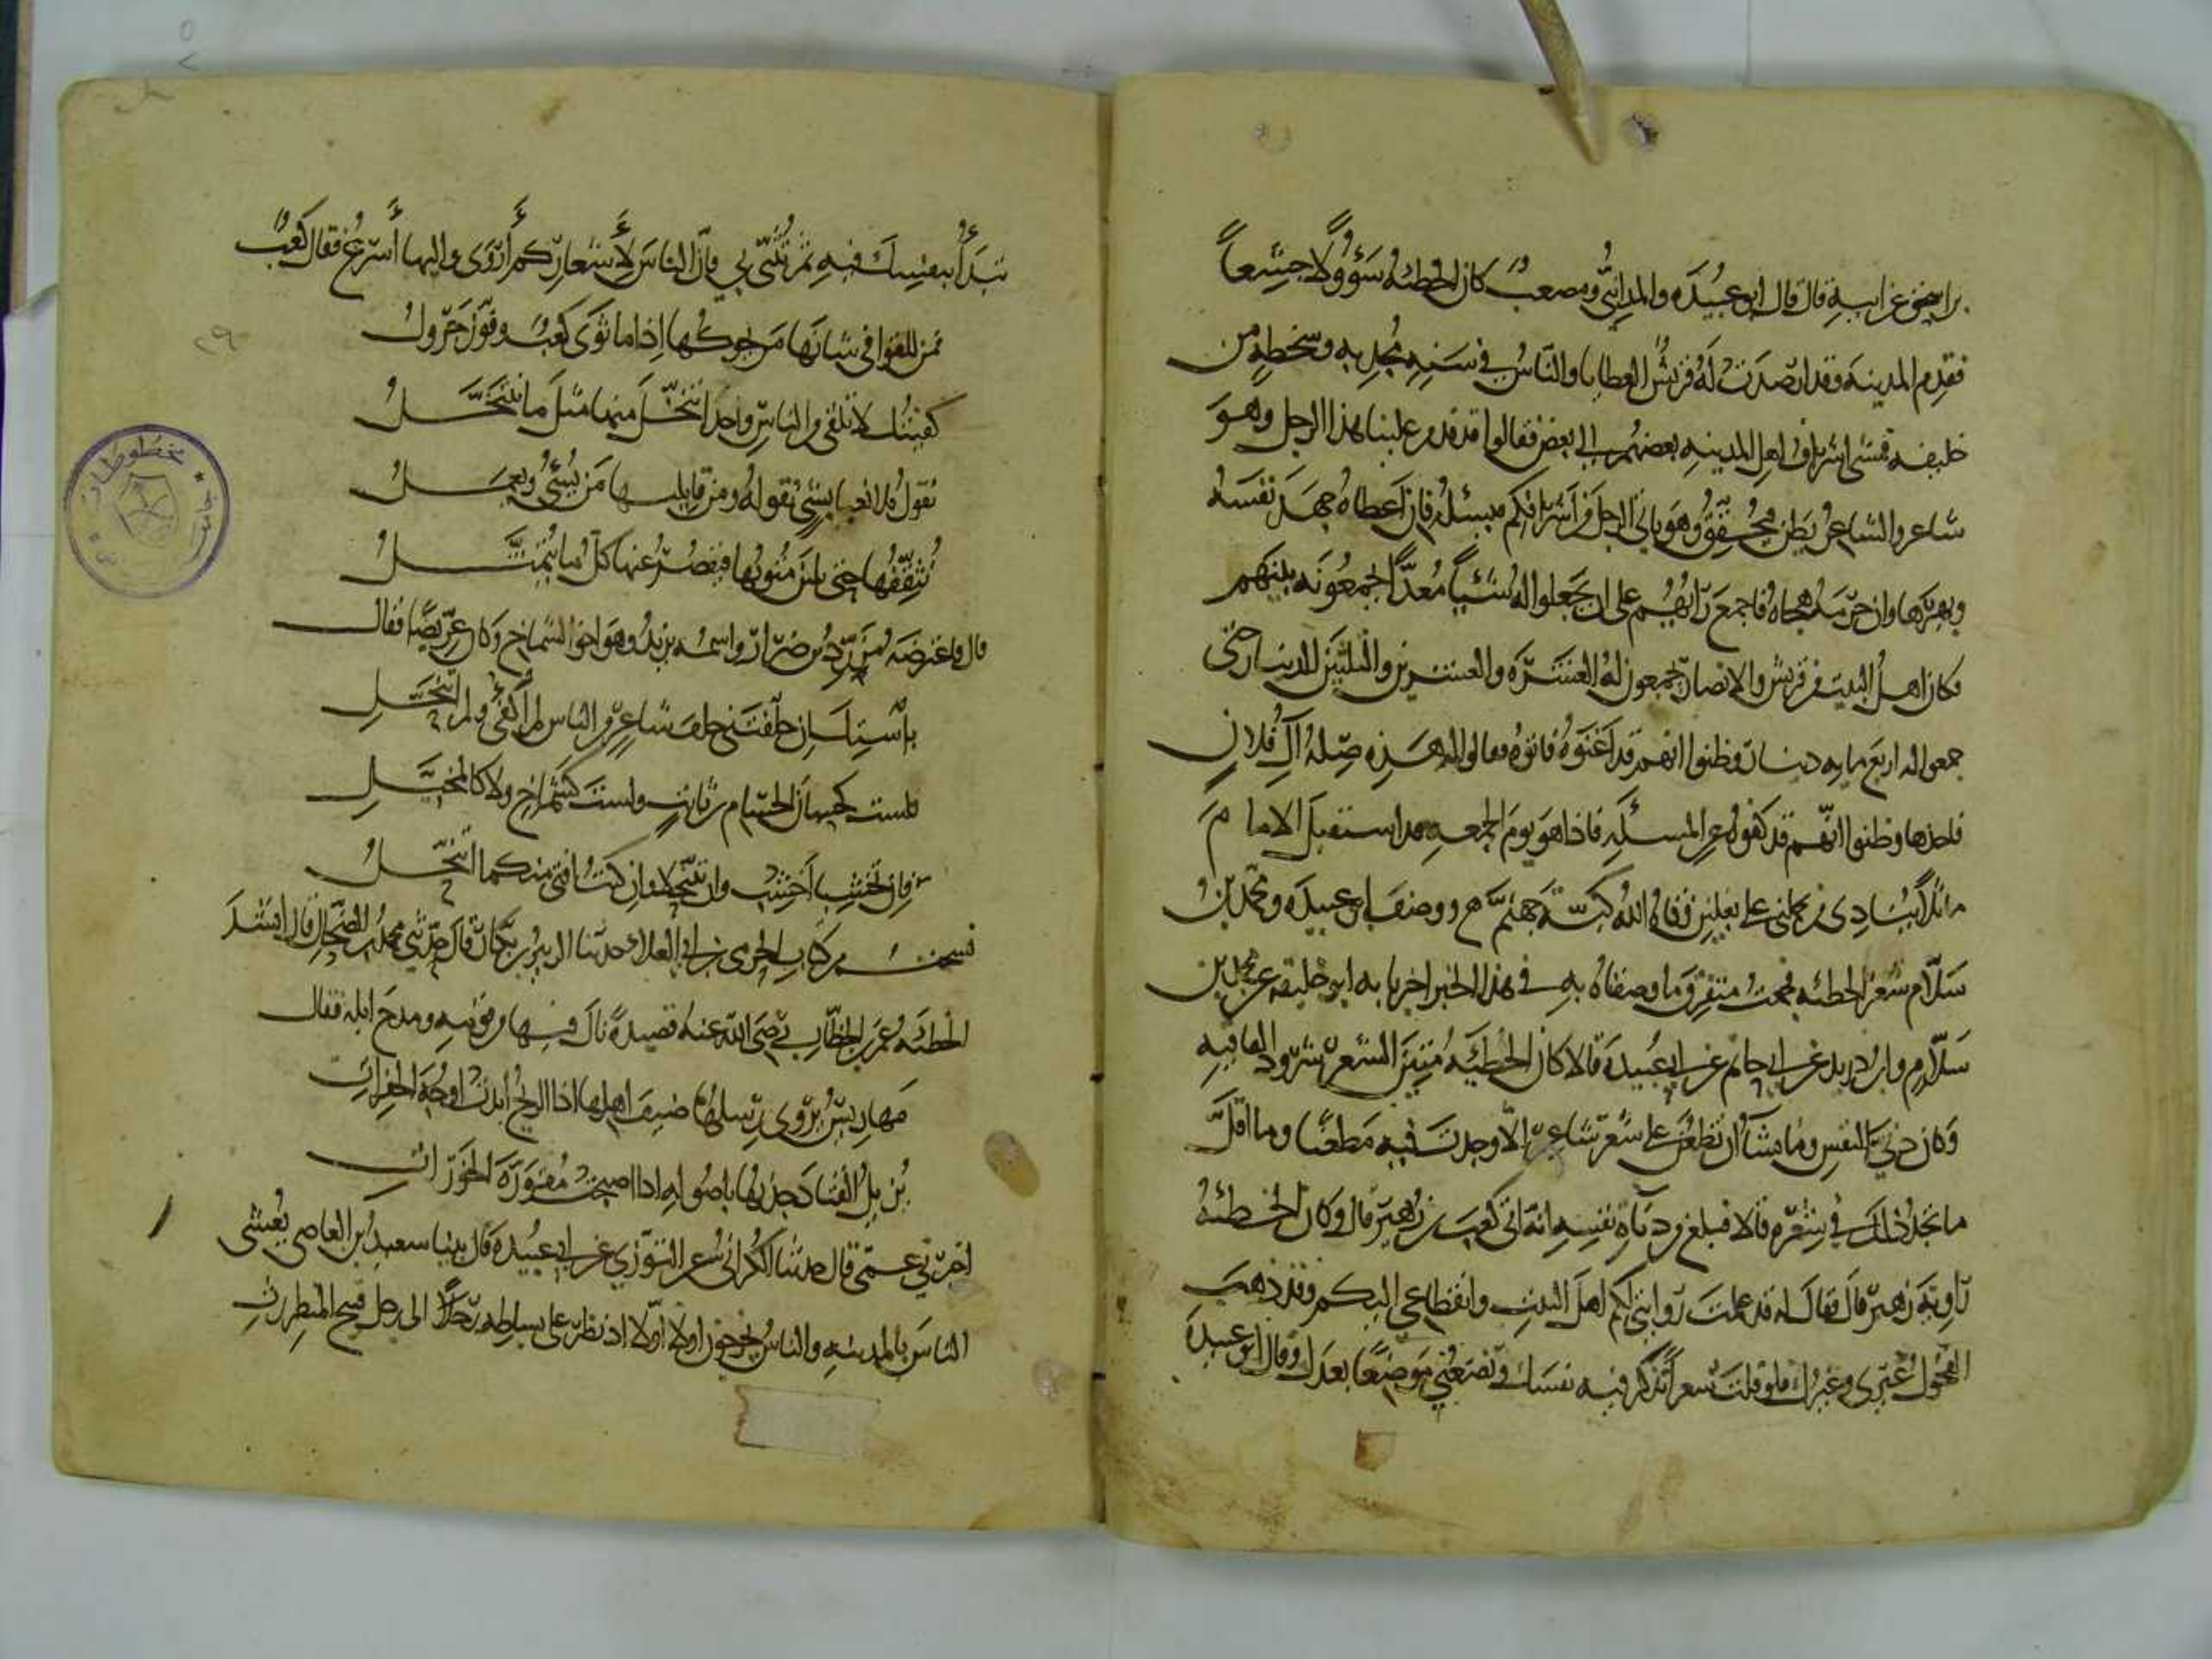 بن اسحق عن ابيه قال قال ابو عبيدة والمدائني ومصعب كان الحطيئة سؤولا جشعا
فقدم المدينة وقد ارصدت له قريش العطايا والناس في سنة مجدبة وسخطة من
خليفة فمشى اشراف اهل المدينة بعضهم الى بعض فقالوا قد قدم علينا هذا الرجل وهو
شاعر والشاعر يظن فيحقق وهو ياتي الرجل من اشرافكم فيسئله فان اعطاه جهد نفسه
وبهرها وان حرمه هجاه فاجمع رايهم على ان يجعلوا له شيئا معدا يجمعونه بينهم
فكان اهل البيت من قريش والانصار يجمعون له العشرة والعشرين والثلثين الدينار حتى
جمعوا له اربع مايه دينار وظنوا انهم قد اغنوه فاتوه فقالوا له هذه صلة آل فلان
فاخذها وظنوا انهم قد كفوه عن المسئلة فاذا هو يوم الجمعة قد استقبل الامام
ماثلا ينادي من يحملني على نعلين وقاه الله كبة جهنم ووصف ابو عبيدة ومحمد بن
سلام شعر الحطيئة فجمعت متفرق ما وصفاه به في هذا الخبر اخبرنا به ابو خليفة عن محمد بن
سلام وابن دريد عن ابي حاتم عن ابي عبيدة قالا كان الحطيئة متين الشعر شرود القافية
وكان دني النفس وما تشا ان تطعن على شعر شاعر الا وجدت فيه مطعنا وما اقل
ما تجد ذلك في شعره قالا فبلغ من دناة نفسه انه اتى كعب بن زهير قال وكان الحطيئة
راوية زهير قال فقال له قد علمت روايتي لكم اهل البيت وانقطاعي اليكم وقد ذهب
الفحول غيري وغيرك فلو قلت شعرا تذكر فيه نفسك وتضعني موضعا بعدك وقال ابو عبيدة
تبدأ بنفسك فيه ثم تثني بي فان الناس لأشعاركم أروى واليها أسرع فقال كعب
فمن للقوافي شانها من يحوكها اذا ما ثوى كعب وفوز جرول
كفيتك لا تلقى من الناس واحدا تنخل منها مثل ما نتنخل
نقول فلا نعيا بشي نقوله ومن قايليها من يسيء ويعمل
نثقفها حتى تلين متونها فيقصر عنها كل ما يتمثل
قال فاعترضه مزرد بن ضرار واسمه يزيد وهو اخو الشماخ وكان عريضا فقال
باستك ان خلفتني خلف شاعر من الناس لم أكفئ ولم اتنحل
فلست كحسان الحسام بن ثابت ولست كشماخ ولا كالمخبل
فان تخشبا اخشب وان تتنخلا وان كنت افتى منكما اتنخل
نسخت من كتاب الحرمي بن ابي العلاء حدثنا الزبير بن بكار قال حدثني محمد بن الضحاك قال انشد
الحطيئة عمر بن الخطاب رضي الله عنه قصيدة نال فيها من قومه ومدح ابله فقال
مهاريس يروي رسلها ضيف اهلها اذا الريح ابدت اوجه الخفرات
يزيل القتاد جذبها باصوله اذا اصبحت مقورة الخورات
اخبرني عمي قال حدثنا الكراني عن التوزي عن ابي عبيدة قال بينا سعيد بن العاصي يعشي
الناس بالمدينة والناس يخرجون اولا اولا اذ نظر على بساطه رجلا الى رجل قبيح المنظر رث